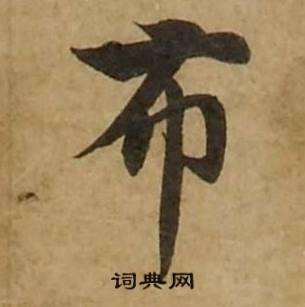 布
词典网